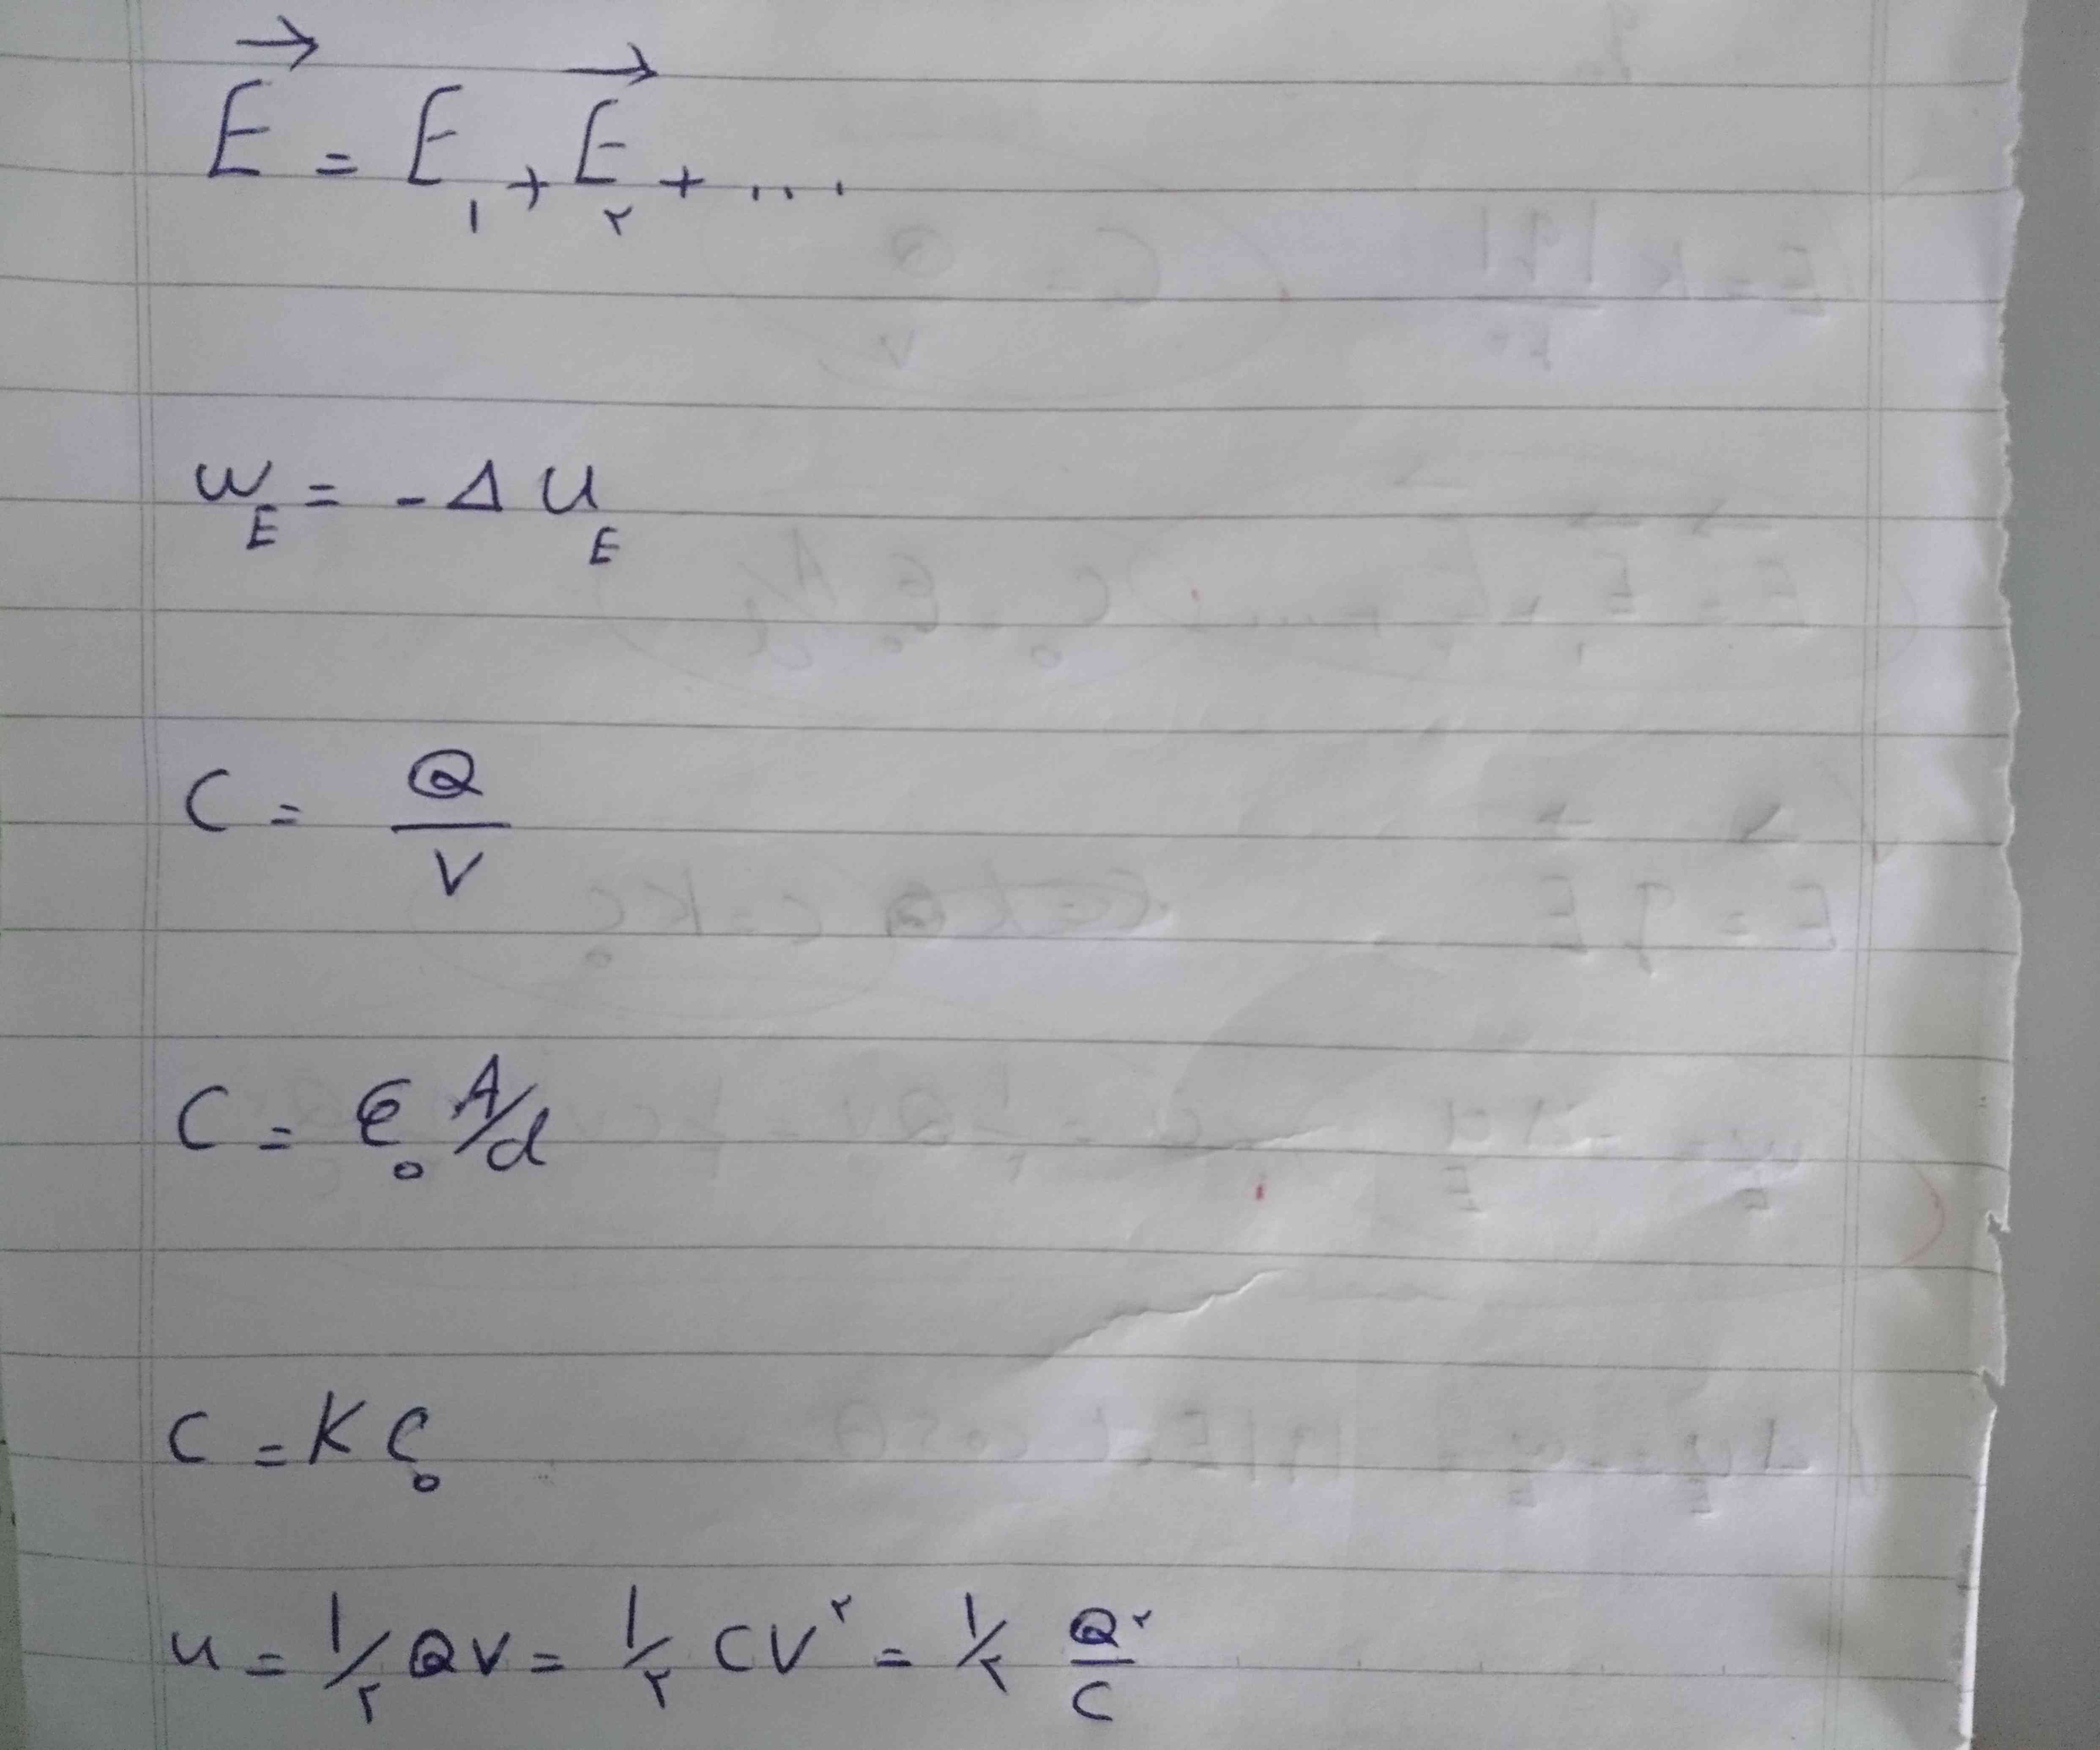 E⃗ = E₁ + E⃗₂ + ...
W_E = -Δ U_E
C = Q/V
C = ϵ₀ A/d
C = K C₀
u = ۱/۲ QV = ۱/۲ CV^۲ = ۱/۲ Q^۲/C